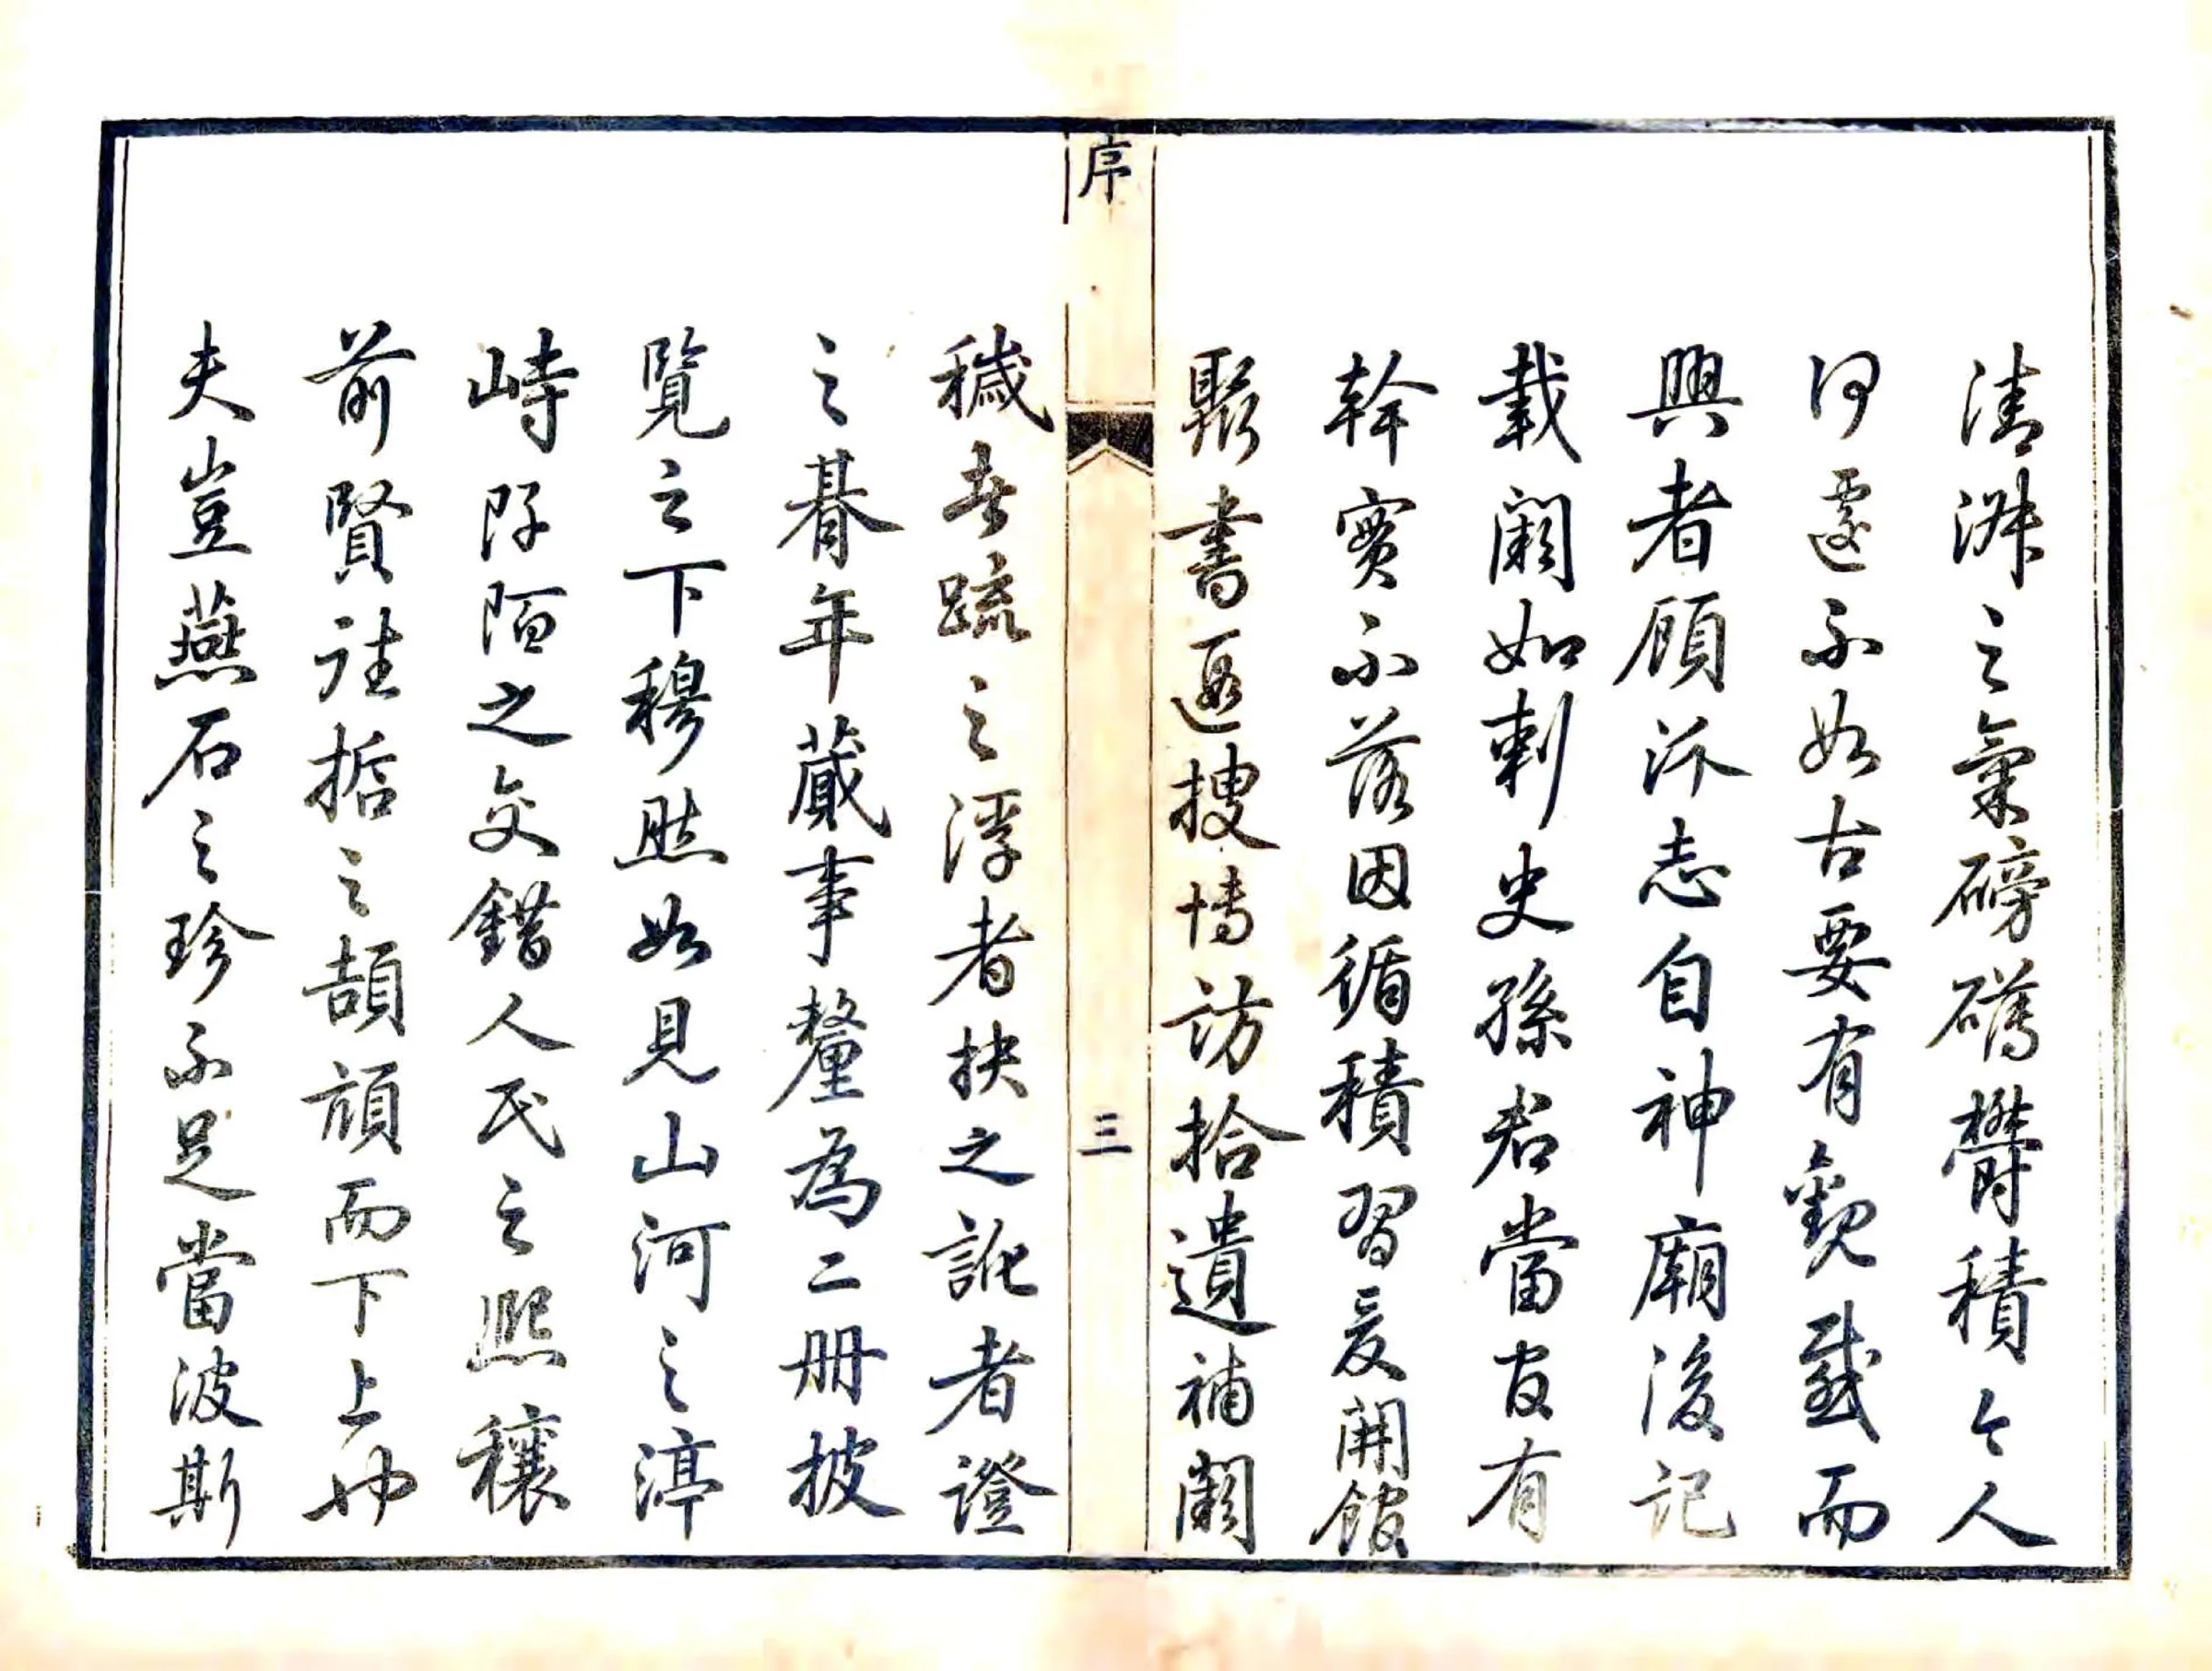 清淑之氣磅礡欝積今人
何遽不如古要有觀感而
興者顧汴志自神廟後記
載闕如刺史孫君當官有
幹實不落因循積習爰開館
聚書遐搜博訪拾遺補闕
穢者疏之浮者抉之訛者證
之朞年蕆事釐為二冊披
覽之下穆然如見山河之渟
峙阡陌之交錯人民之熙穰
前賢往哲之頡頏而下上也
夫豈燕石之珍不足當波斯
序
三